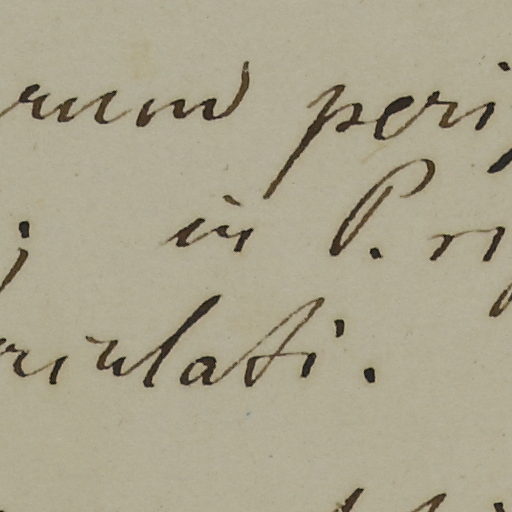 rum peri
; in P. ri
riculati.